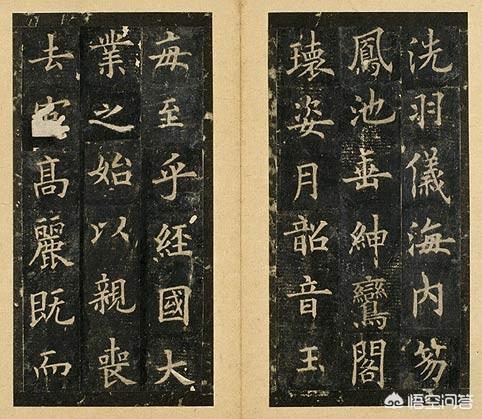 洗羽儀海内笏
鳳池垂紳鸞閣
瓌姿月韶音玉
每至乎經國大
業之始以親喪
去髙麗既而
悟空问答